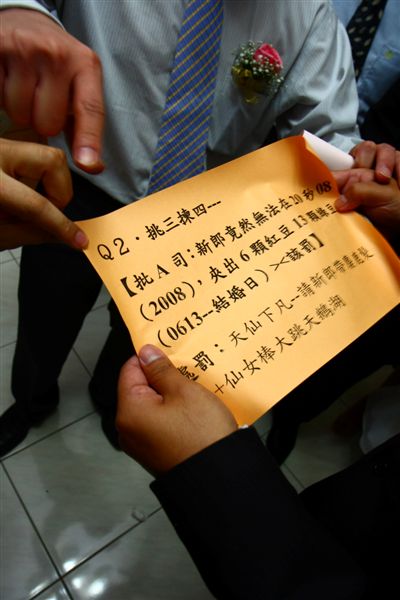 Q2．挑三揀四---
【批A司：新郎竟然無法在20秒08
(2008)，夾出6顆紅豆13顆綠豆
(0613--結婚日)><該罰】
處罰：天仙下凡--請新郎帶
+仙女棒大跳天鵝湖